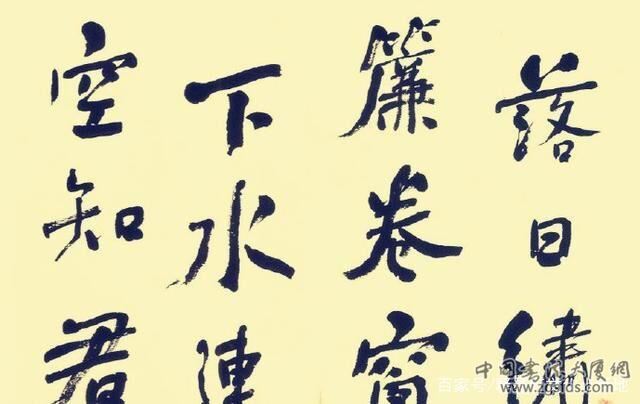 落日繡
簾卷
下水連
空知君
中国书法大厦网
百家号/
www.zgsfds.com